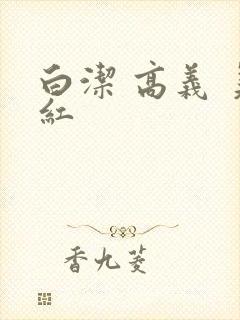 白潔 高義
紅
香九菱